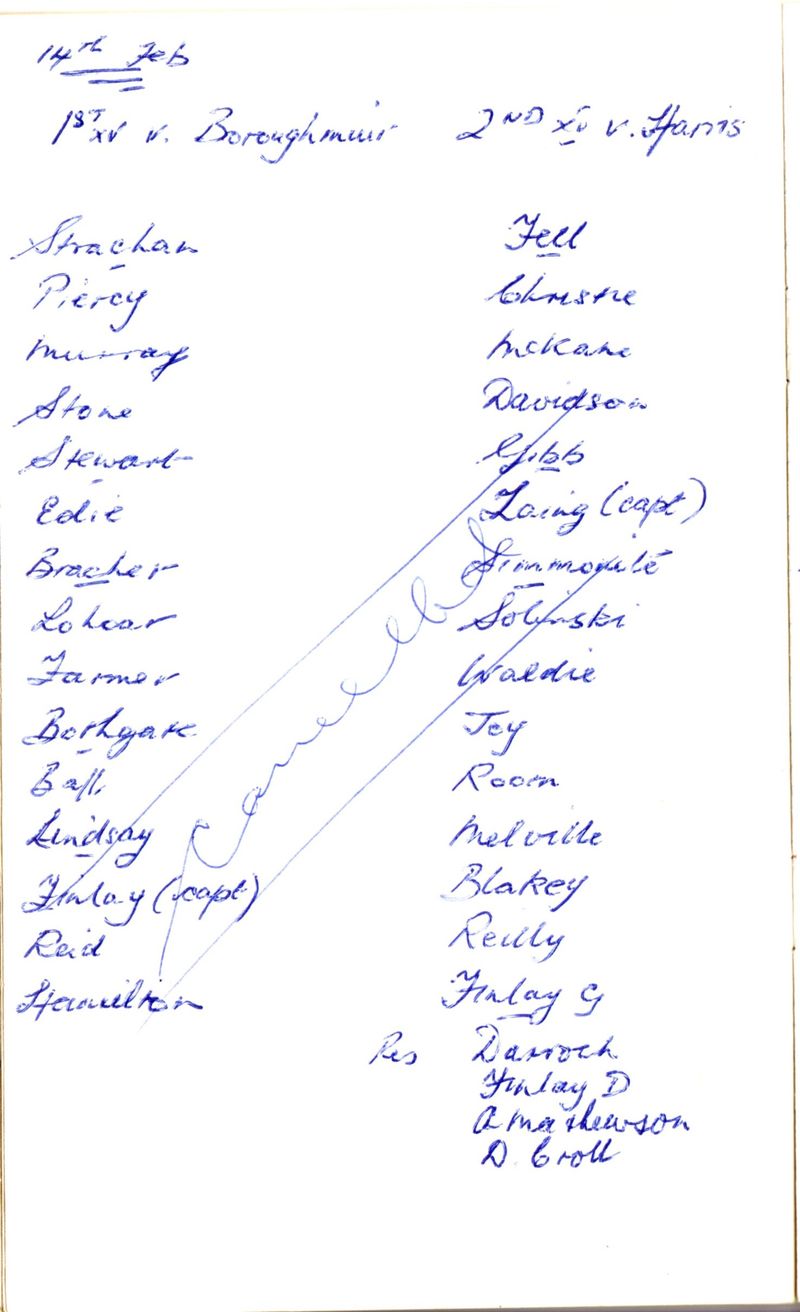 14th Feb
1ST XV v. Boroughmuir
Strachan
Piercy
Murray
Stone
Stewart
Edie
Bracher
Lohoar
Farmer
Bothgate
Ball
Lindsay
Finlay (capt)
Reid
Hamilton
2ND XV v. Harris
Fell
Christie
McKane
Davidson
Gibb
Laing (capt)
Simmonite
Solinski
Waldie
Joy
Room
Melville
Blakey
Reilly
Finlay G
Res Darroch
Finlay D
A Mathewson
D. Croll
Cancelled